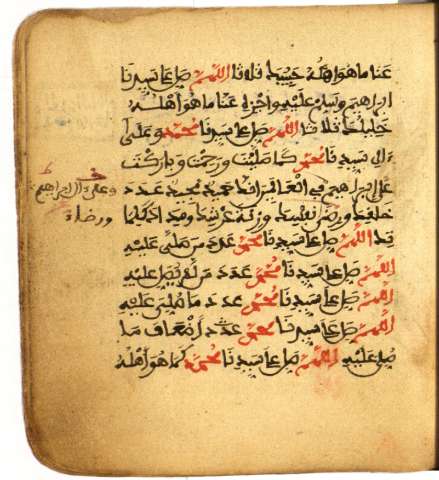 عنا ما هو اهله حبيبك ثلاثا اللهم صل على سيدنا
ابراهيم وسلم عليه واجزه عنا ما هو اهله
خليلك ثلاثا اللهم صل على سيدنا محمد وعلى
ال سيدنا محمد كما صليت ورحمت وباركت
على ابراهيم في العالمين انك حميد مجيد عدد
خلقك ورضى نفسك وزنة عرشك ومداد كلما
تك اللهم صل على سيدنا محمد عدد من صلى عليه
اللهم صل على سيدنا محمد عدد من لم يصل عليه
اللهم صل على سيدنا محمد عدد ما صلي عليه
اللهم صل على سيدنا محمد عدد اضعاف ما
صلي عليه اللهم صل على سيدنا محمد كما هو اهله
وعلى ال ابراهيم